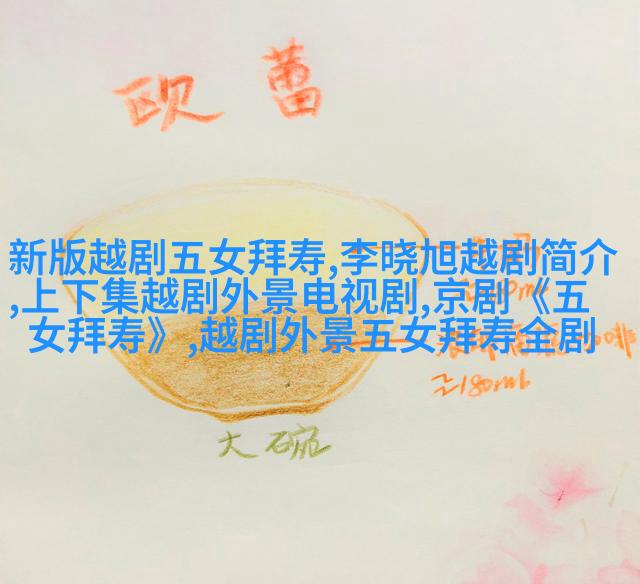 欧蕾
新版越剧五女拜寿,李晓旭越剧简介
,上下集越剧外景电视剧,京剧《五
女拜寿》,越剧外景五女拜寿全剧
≥180ml
大碗